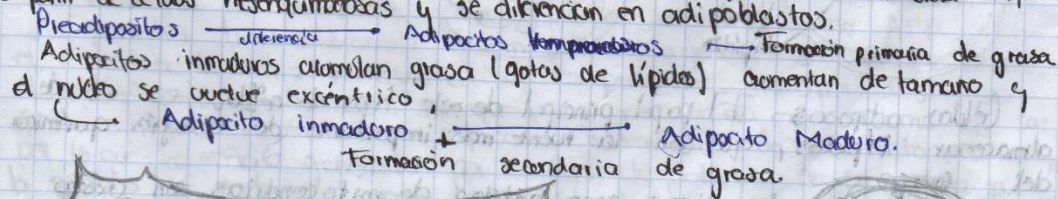 de células mesenquimatosas y se diferencian en adipoblastos.
Preadipositos diferencia → Adipocitos → Formación primaria de grasa
Adipocitos inmaduros acomulan grasa (gotas de lípidos) aumentan de tamano y
el nucleo se vuelve excéntrico
→ Adipocito inmaduro + → Adipocito Maduro.
Formación secundaria de grasa.